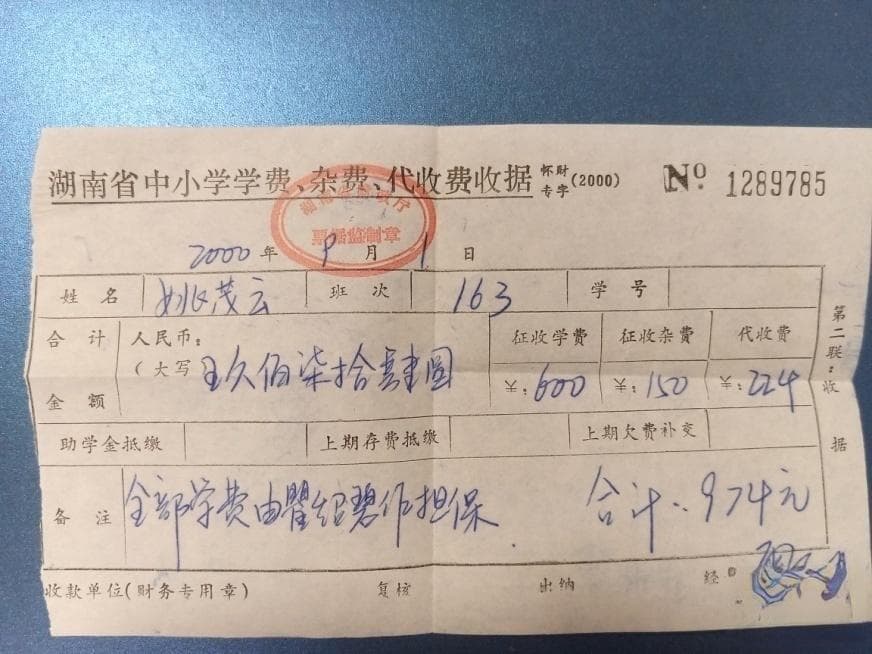 湖南省中小学学费、杂费、代收费收据 怀财专字(2000) № 1289785
票据监制章
2000年 9月 1日
姓名 姚茂云 班次 163 学号
合计金额 人民币:(大写 玖佰柒拾肆圆 征收学费 ¥:600 征收杂费 ¥:150 代收费 ¥:224
助学金抵缴 上期存费抵缴 上期欠费补交
备注 全部学费由瞿绍碧作担保. 合计:974元
收款单位(财务专用章) 复核 出纳 经
第二联:收据